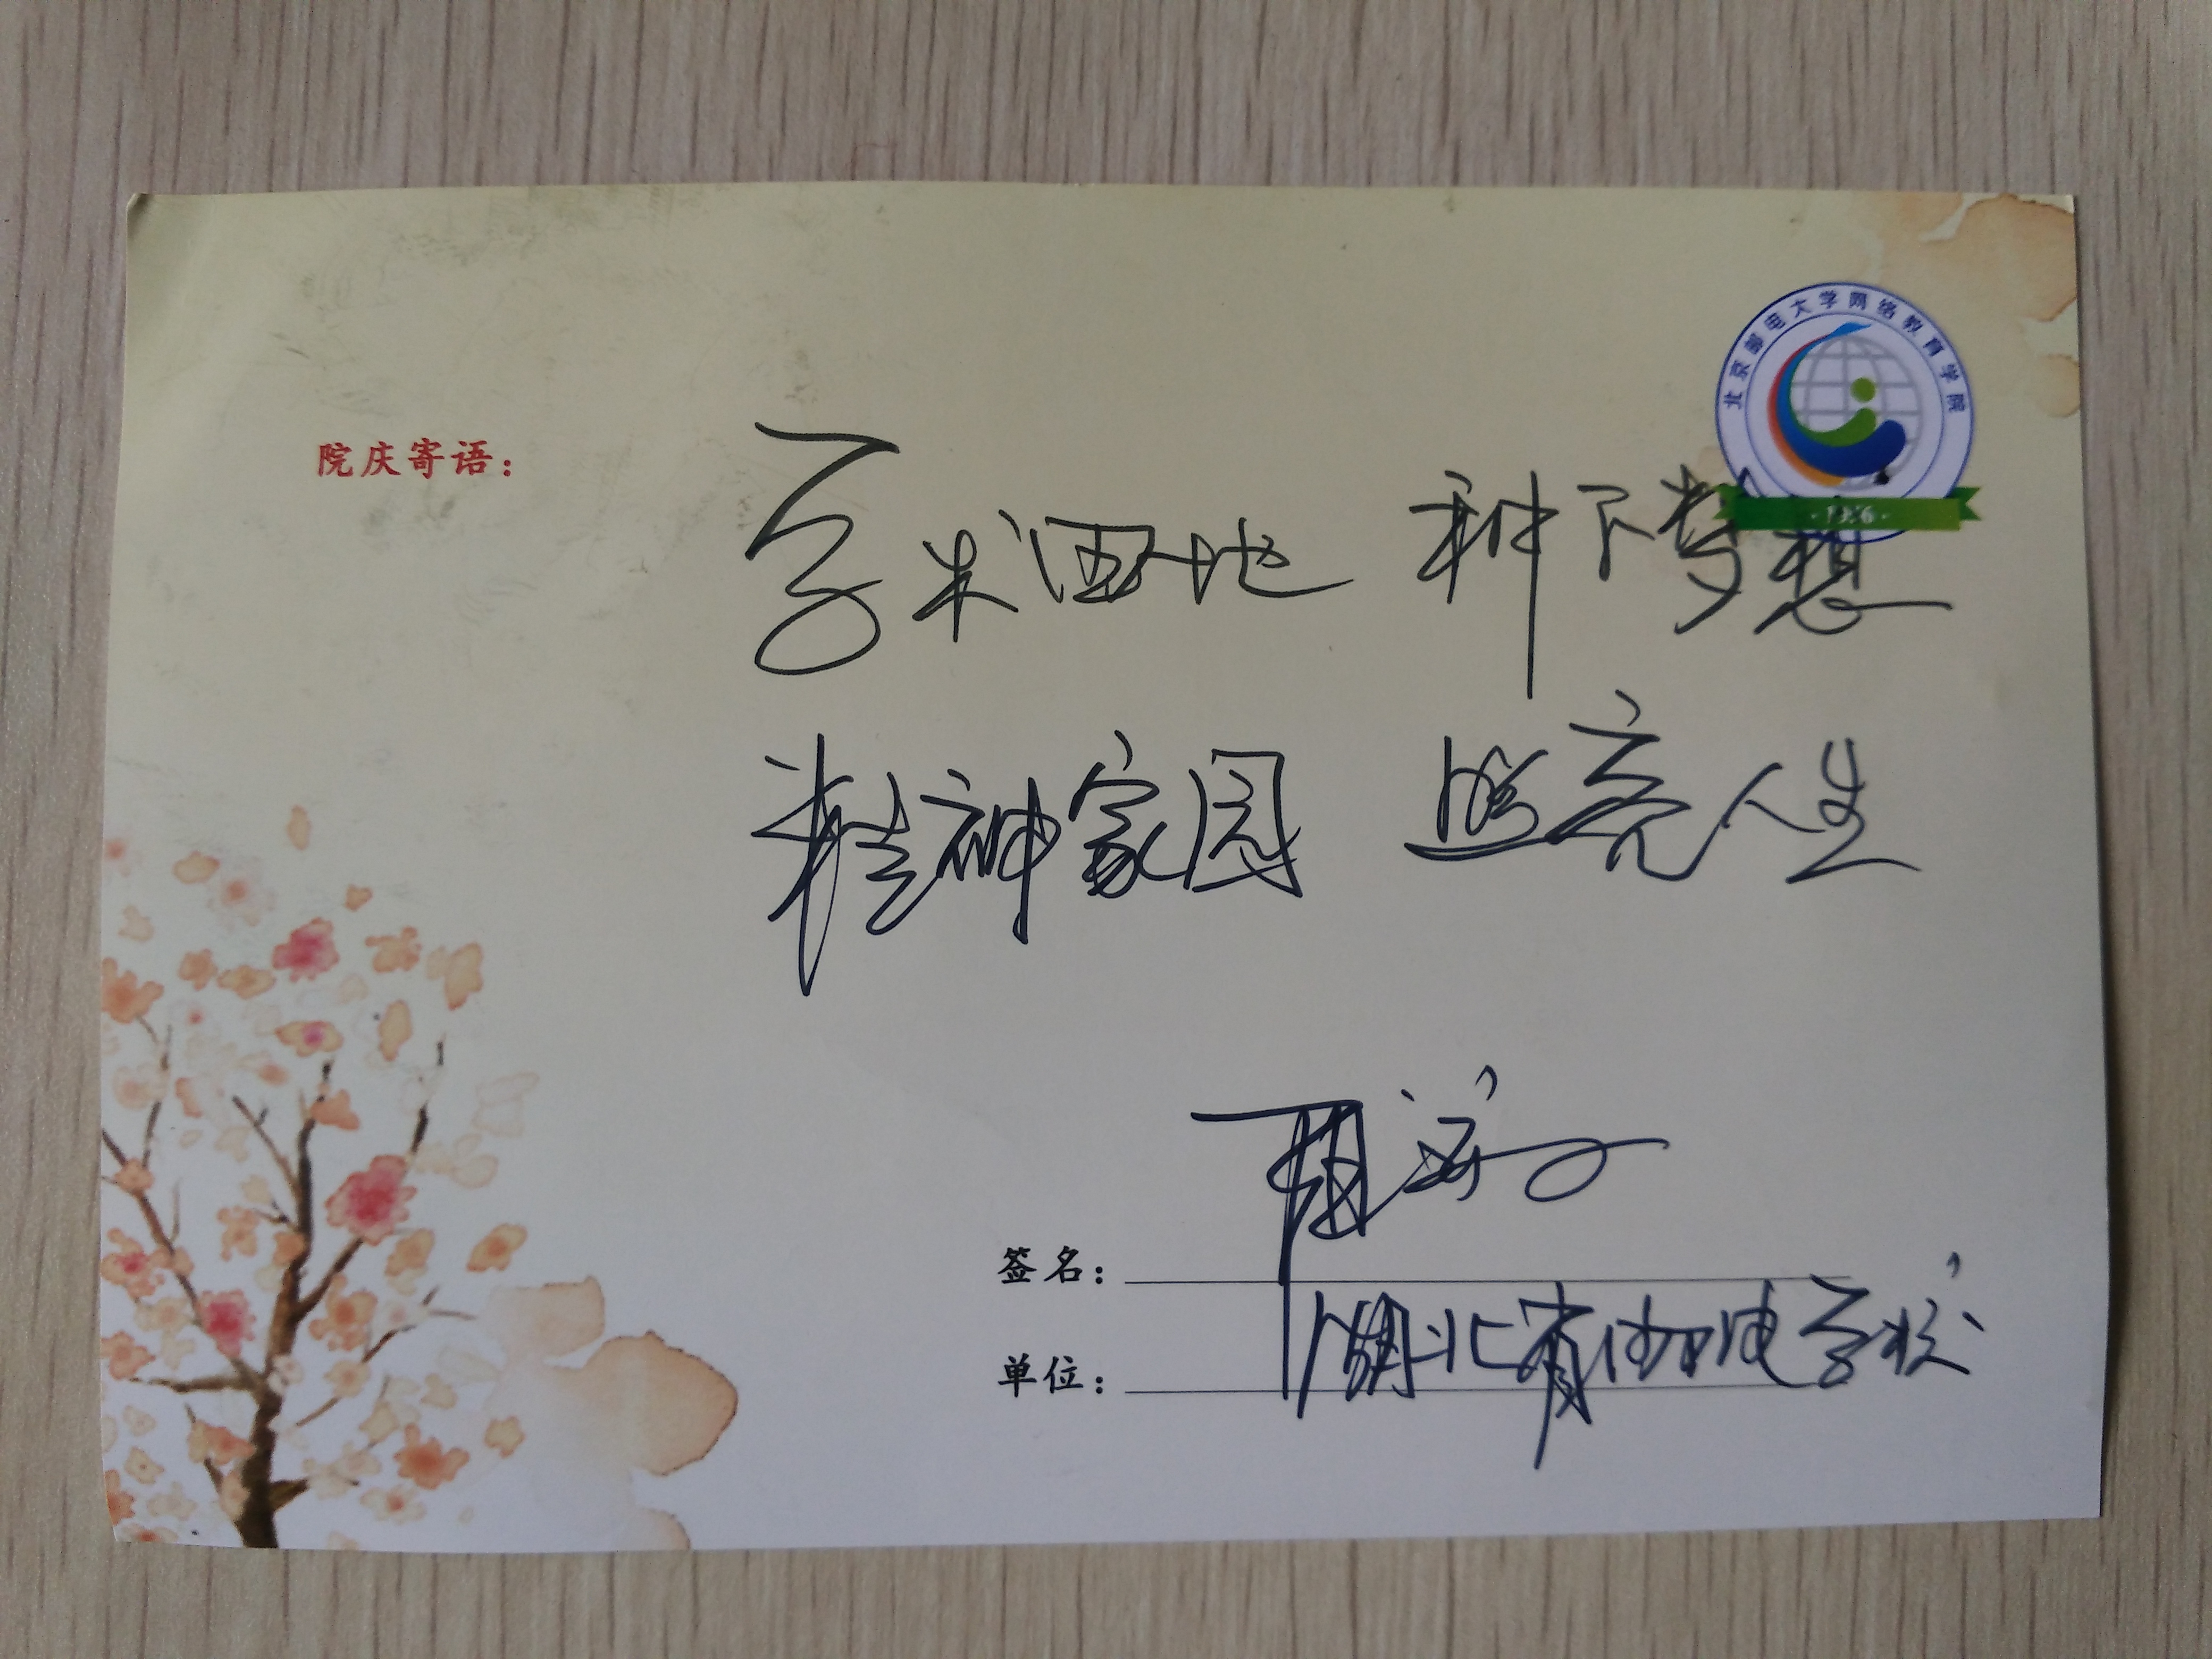 北京邮电大学网络教育学院
·1956·
院庆寄语：
学术酒地 种下梦想
精神家园 照亮人生
签名：
单位： 湖北省邮电学校